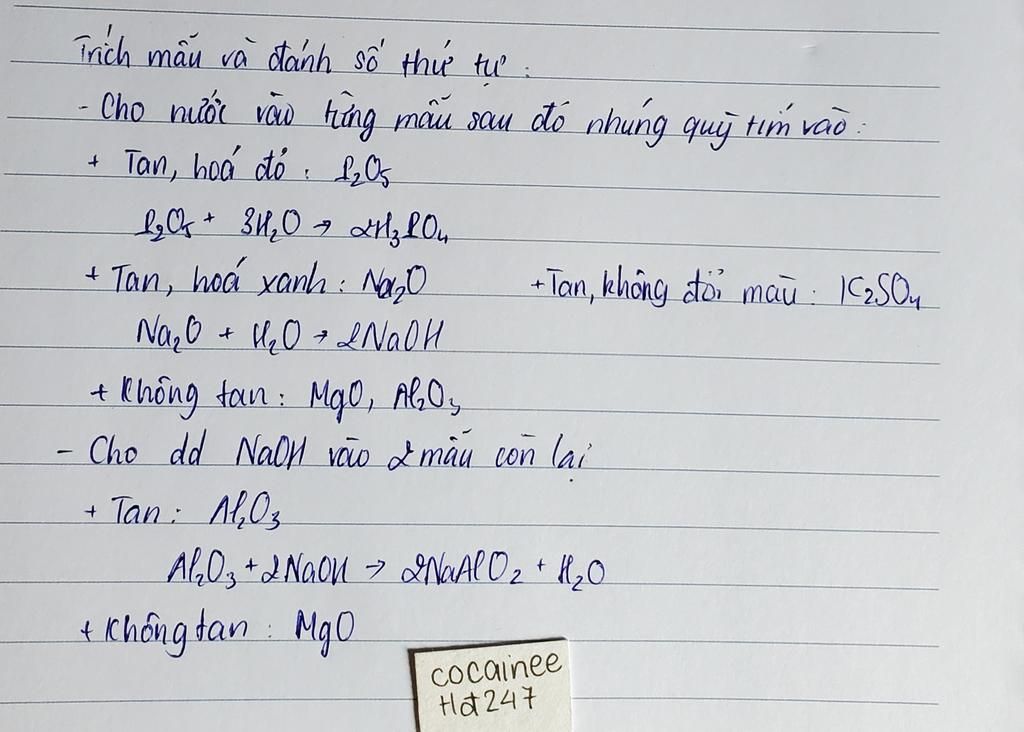 Trích mẫu và đánh số thứ tự :
- Cho nước vào từng mẫu sau đó nhúng quỳ tím vào :
+ Tan, hoá đỏ : P₂O₅
P₂O₅ + 3H₂O → 2H₃PO₄
+ Tan, hoá xanh : Na₂O
+ Tan, không đổi màu : K₂SO₄
Na₂O + H₂O → 2NaOH
+ Không tan : MgO, Al₂O₃
- Cho dd NaOH vào 2 mẫu còn lại
+ Tan : Al₂O₃
Al₂O₃ + 2NaOH → 2NaAlO₂ + H₂O
+ Không tan : MgO
cocainee
Hđ247